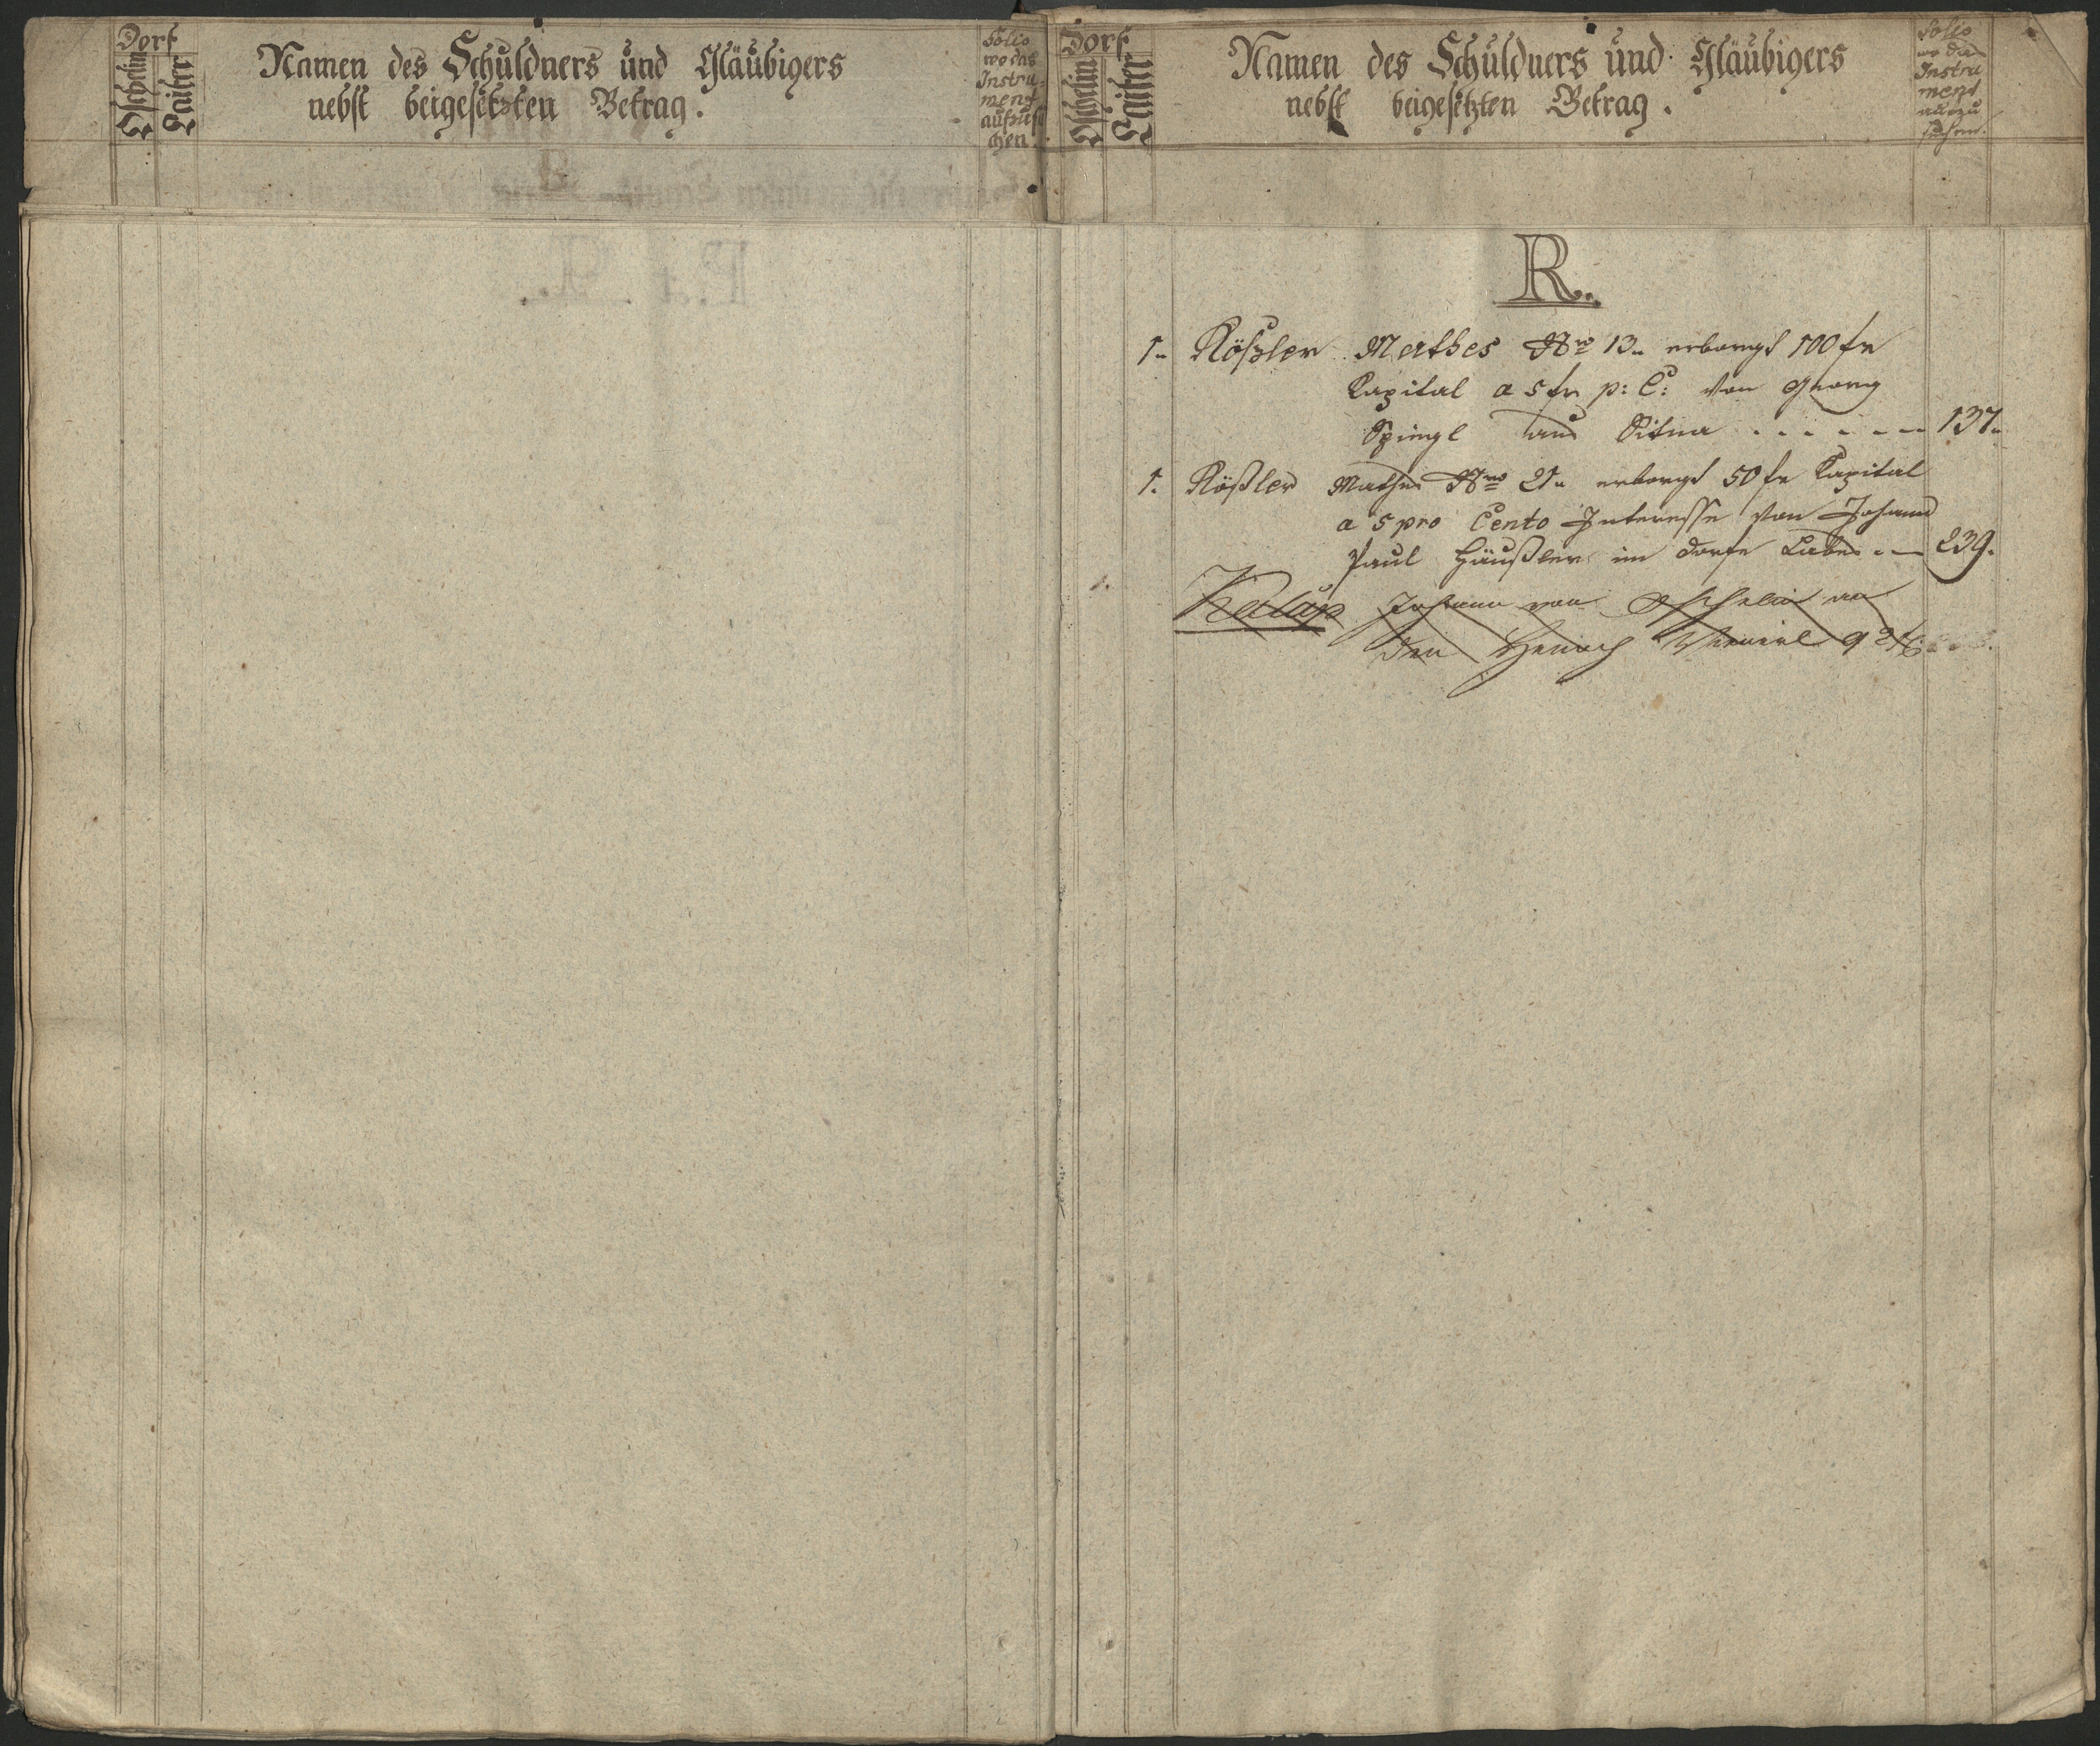 Dorf
Tschelim
Laiter
Namen des Schuldners und Gläubigers
nebst beigesetzten Betrag.
Folio
wo das
Instru-
ment
aufzusu
chen
Dorf
Tschelim
Laiter
Namen des Schuldners und Gläubigers
nebst beigesetzten Betrag.
Folio
wo das
Instru
ment
aufzu
suchen.
R.
1. Rößler Mathes Nro 13. erborgt 100 fr
Kapital a 5 fr p: C: von Georg
Spiegl aus 137.
1. Rößler Mathes Nro 21. erborgt 50 fr Kapital
a 5 pro Cento Interesse von Johann
Paul Häußler im Dorfe 239.
Johann von
den